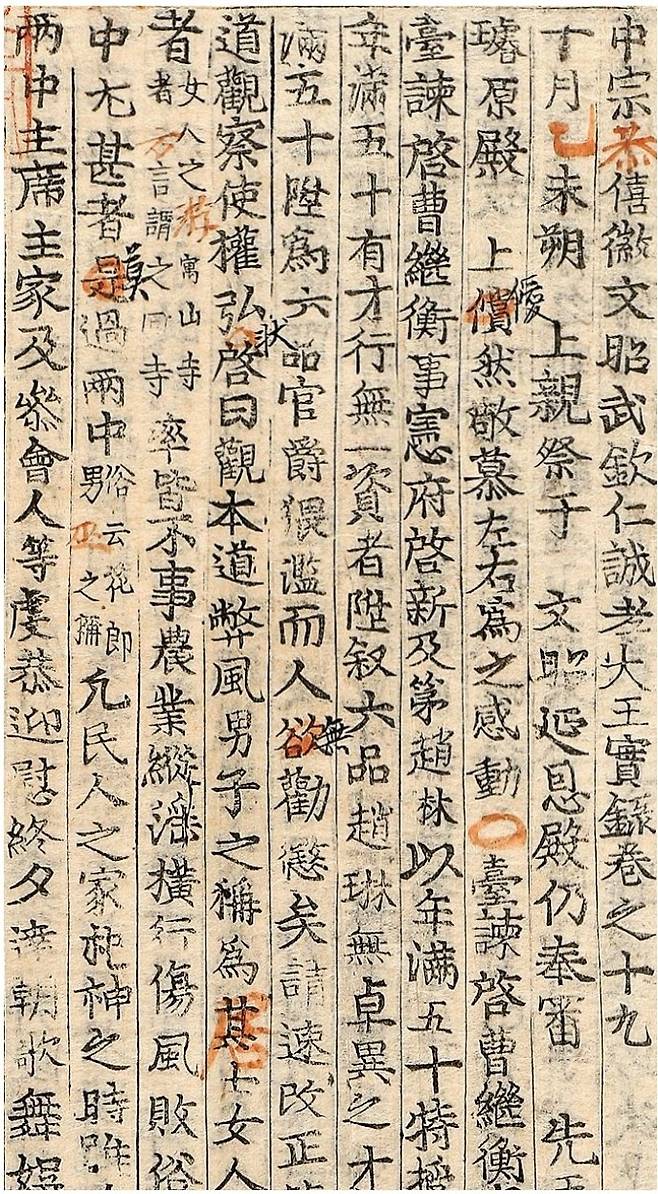 中宗恭僖徽文昭武欽仁誠孝大王實錄卷之十九
十月乙未朔 上親祭于 文昭延恩殿仍奉審 先
璿原殿 上償僾然敬慕左右爲之感動○臺諫啓曹繼衡
臺諫啓曹繼衡事憲府啓新及第趙林以年滿五十特
年滿五十有才行無一資者陞敘六品趙琳無卓異之才
滿五十陞爲六品官爵猥濫而人欲無勸懲矣請速改正
道觀察使權弘啓曰觀本道弊風男子之稱爲居士女人
者女人之遊寓山寺者方言謂之回寺率皆不事農業縱淫橫行傷風敗俗
中尤甚者是莫過兩中俗云花郎男巫之稱凡民人之家祀神之時雖
兩中主席主家及參會人等虔恭迎慰終夕達朝歌舞娛